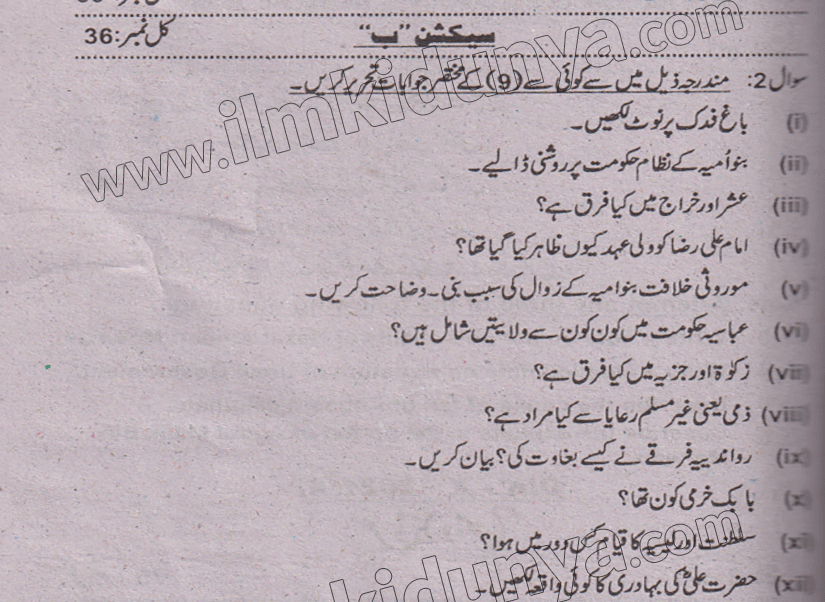 سیکشن "ب" کل نمبر: 36
سوال 2: مندرجہ ذیل میں سے کوئی سے (9) کے مختصر جوابات تحریر کریں۔
(i) باغ فدک پر نوٹ لکھیں۔
(ii) بنو اُمیہ کے نظام حکومت پر روشنی ڈالیے۔
(iii) عشر اور خراج میں کیا فرق ہے؟
(iv) امام علی رضا کو ولی عہد کیوں ظاہر کیا گیا تھا؟
(v) موروثی خلافت بنو امیہ کے زوال کی سبب بنی۔ وضاحت کریں۔
(vi) عباسیہ حکومت میں کون کون سے ولایتیں شامل ہیں؟
(vii) زکوٰة اور جزیہ میں کیا فرق ہے؟
(viii) ذمی یعنی غیر مسلم رعایا سے کیا مراد ہے؟
(ix) رواندیہ فرقے نے کیسے بغاوت کی؟ بیان کریں۔
(x) بابک خرمی کون تھا؟
(xi) سلطنت اور لیسیہ کا قیام کس دور میں ہوا؟
(xii) حضرت علیؓ کی بہادری کا کوئی واقعہ لکھیں۔
www.ilmkidunya.com
kidunya.com